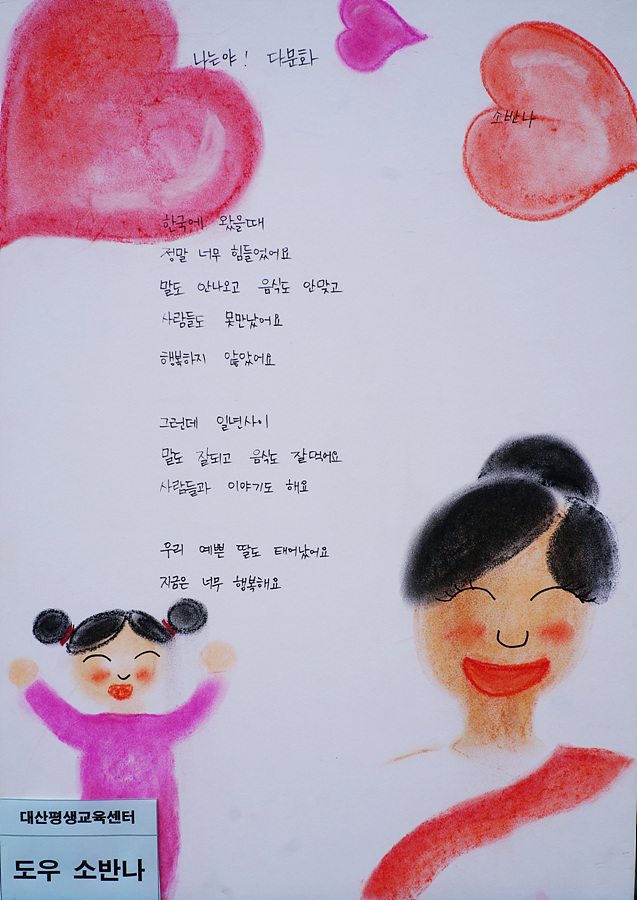 나는야! 다문화
소반나
한국에 왔을때
정말 너무 힘들었어요
말도 안나오고 음식도 안맞고
사람들도 못만났어요
행복하지 않았어요
그런데 일년사이
말도 잘되고 음식도 잘먹어요
사람들과 이야기도 해요
우리 예쁜 딸도 태어났어요
지금은 너무 행복해요
대산평생교육센터
도우 소반나